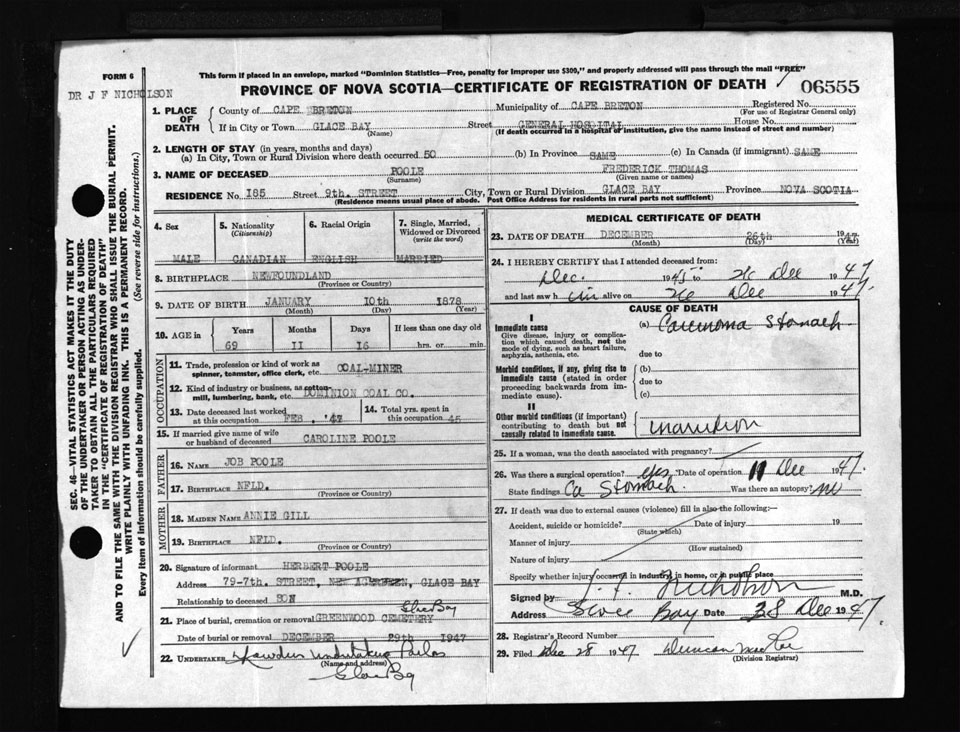 This form if placed in an envelope, marked "Dominion Statistics—Free, penalty for improper use $300," and properly addressed will pass through the mail "FREE"
FORM 6
PROVINCE OF NOVA SCOTIA—CERTIFICATE OF REGISTRATION OF DEATH
06555
DR J F NICHOLSON
1. PLACE OF DEATH
County of CAPE BRETON Municipality of CAPE BRETON Registered No.
(For use of Registrar General only)
If in City or Town GLACE BAY Street GENERAL HOSPITAL House No.
(Name) (If death occurred in a hospital or institution, give the name instead of street and number)
2. LENGTH OF STAY (in years, months and days)
(a) In City, Town or Rural Division where death occurred 50 (b) In Province SAME (c) In Canada (if immigrant) SAME
3. NAME OF DECEASED POOLE FREDERICK THOMAS
(Surname) (Given name or names)
RESIDENCE No 185 Street 9th. STREET City, Town or Rural Division GLACE BAY Province NOVA SCOTIA
(Residence means usual place of abode. Post Office Address for residents in rural parts not sufficient)
4. Sex 5. Nationality (Citizenship) 6. Racial Origin 7. Single, Married, Widowed or Divorced (write the word)
MALE CANADIAN ENGLISH MARRIED
8. BIRTHPLACE NEWFOUNDLAND
(Province or Country)
9. DATE OF BIRTH JANUARY 10th 1878
(Month) (Day) (Year)
10. AGE in Years Months Days If less than one day old
69 II I6 hrs. or min.
OCCUPATION
11. Trade, profession or kind of work as spinner, teamster, office clerk, etc. COAL-MINER
12. Kind of industry or business, as cotton-mill, lumbering, bank, etc. DOMINION COAL CO.
13. Date deceased last worked at this occupation FEB. '47 14. Total yrs. spent in this occupation 45
15. If married give name of wife or husband of deceased CAROLINE POOLE
FATHER
16. NAME JOB POOLE
17. BIRTHPLACE NFLD.
(Province or Country)
MOTHER
18. MAIDEN NAME ANNIE GILL
19. BIRTHPLACE NFLD.
(Province or Country)
20. Signature of informant HERBERT POOLE
Address 79-7th. STREET, NEW ABERDEEN, GLACE BAY
Relationship to deceased SON
21. Place of burial, cremation or removal GREENWOOD CEMETERY Glace Bay
Date of burial or removal DECEMBER 29th 1947
22. UNDERTAKER Undertaking Parlor
(Name and address)
Glace Bay
MEDICAL CERTIFICATE OF DEATH
23. DATE OF DEATH DECEMBER 26th 1947
(Month) (Day) (Year)
24. I HEREBY CERTIFY that I attended deceased from:
Dec. 1945 to 26 Dec 1947
and last saw him alive on 26 Dec 1947.
CAUSE OF DEATH
I
Immediate cause
Give disease, injury or complication which caused death, not the mode of dying, such as heart failure, asphyxia, asthenia, etc.
(a) Carcinoma Stomach
due to
Morbid conditions, if any, giving rise to immediate cause (stated in order proceeding backwards from immediate cause).
(b)
due to
(c)
II
Other morbid conditions (if important) contributing to death but not causally related to immediate cause.
Inanition
25. If a woman, was the death associated with pregnancy?
26. Was there a surgical operation? yes Date of operation 11 Dec 1947.
State findings Ca Stomach. Was there an autopsy? no
27. If death was due to external causes (violence) fill in also the following:—
Accident, suicide or homicide? Date of injury 19
(State which)
Manner of injury
(How sustained)
Nature of injury
Specify whether injury occurred in industry, in home, or in public place
Signed by J. F. Nicholson M.D.
Address Glace Bay Date 28 Dec 1947
28. Registrar's Record Number
29. Filed Dec 28 1947 Duncan
(Division Registrar)
SEC. 46—VITAL STATISTICS ACT MAKES IT THE DUTY
OF THE UNDERTAKER OR PERSON ACTING AS UNDER-
TAKER TO OBTAIN ALL THE PARTICULARS REQUIRED
IN THE "CERTIFICATE OF REGISTRATION OF DEATH"
AND TO FILE THE SAME WITH THE DIVISION REGISTRAR WHO SHALL ISSUE THE BURIAL PERMIT.
WRITE PLAINLY WITH UNFADING INK. THIS IS A PERMANENT RECORD.
Every item of information should be carefully supplied. (See reverse side for instructions.)